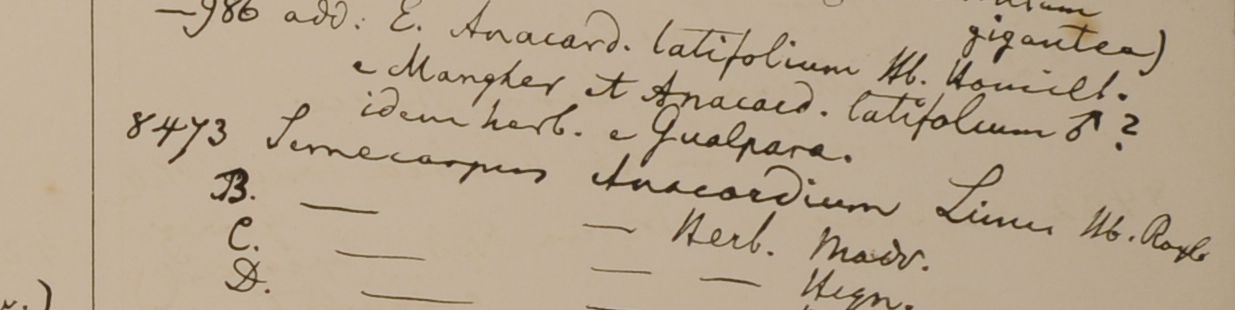 gigantea)
—986 add: E. Anacard. latifolium Hb. Hamilt.
e Mangher et Anacard. latifolium ♂ ?
idem herb. e Gualpara.
8473 Semecarpus Anacardium Linn Hb. Royle
B. — — Herb. Madr.
C. — — — Heyn.
D. — —